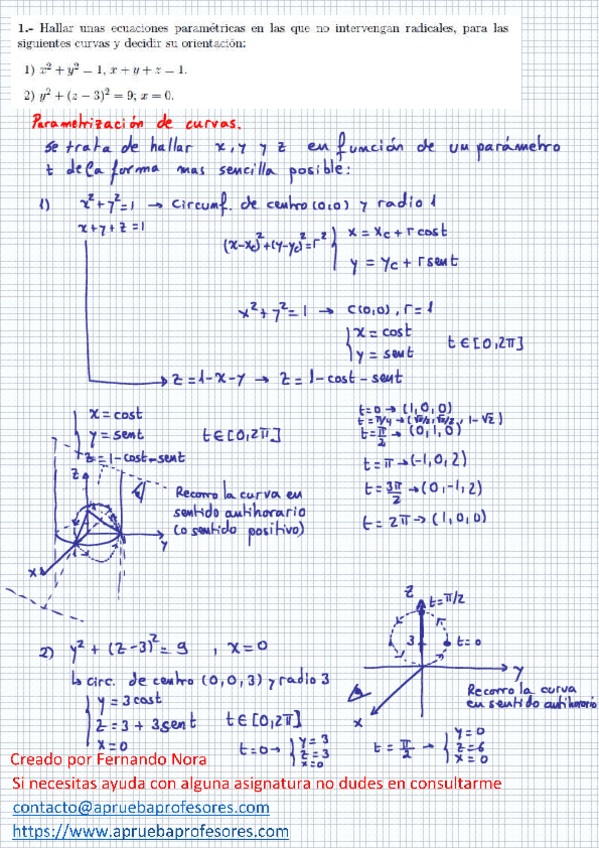 1.- Hallar unas ecuaciones paramétricas en las que no intervengan radicales, para las
siguientes curvas y decidir su orientación:
1) x² + y² = 1, x + y + z = 1.
2) y² + (z − 3)² = 9; x = 0.
Parametrización de curvas.
Se trata de hallar x, y y z en función de un parámetro
t de la forma mas sencilla posible:
1) x²+y²=1 → Circunf. de centro (0,0) y radio 1
x+y+z=1
(x-xc)²+(y-yc)²=r² { x = xc + r cost
y = yc + r sent
x²+y²=1 → C(0,0), r=1
{ x = cost
y = sent
t ∈ [0,2π]
→ z=1-x-y → z = 1-cost-sent
{ x = cost
y = sent
z = 1-cost-sent
t ∈ [0,2π]
t=0 → (1,0,0)
t=π/4 → (√2/2, √2/2, 1-√2)
t=π/2 → (0,1,0)
t=π → (-1,0,2)
t=3π/2 → (0,-1,2)
t=2π → (1,0,0)
z
y
x
Recorro la curva en
sentido antihorario
(o sentido positivo)
2) y² + (z-3)² = 9 , x=0
↳ circ. de centro (0,0,3) y radio 3
{ y = 3cost
z = 3 + 3sent
x = 0
t ∈ [0,2π]
z
t=π/2
3
t=0
y
x
Recorro la curva
en sentido antihorario
t=0 → { y=3
z=3
x=0
t = π/2 → { y=0
z=6
x=0
Creado por Fernando Nora
Si necesitas ayuda con alguna asignatura no dudes en consultarme
contacto@apruebaprofesores.com
https://www.apruebaprofesores.com